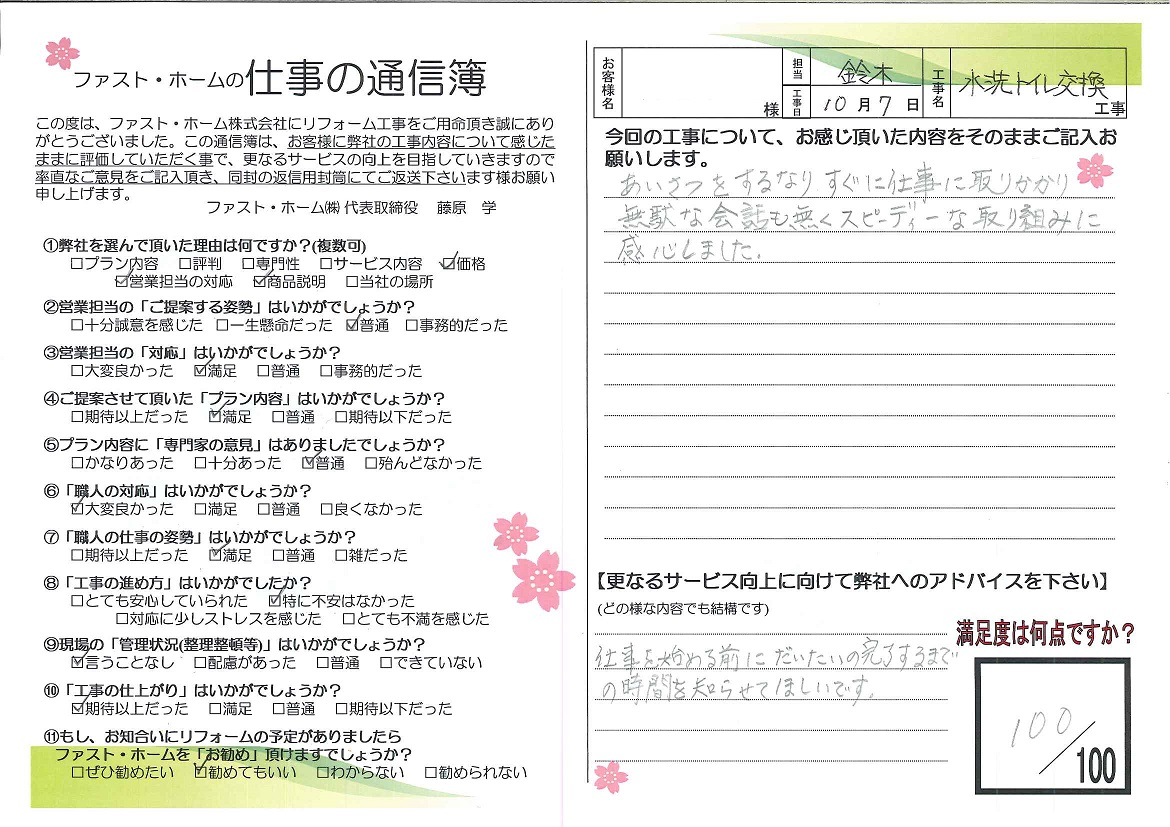 ファスト・ホームの仕事の通信簿
この度は、ファスト・ホーム株式会社にリフォーム工事をご用命頂き誠にあり
がとうございました。この通信簿は、お客様に弊社の工事内容について感じた
ままに評価していただく事で、更なるサービスの向上を目指していきますので
率直なご意見をご記入頂き、同封の返信用封筒にてご返送下さいます様お願い
申し上げます。
ファスト・ホーム㈱ 代表取締役 藤原 学
①弊社を選んで頂いた理由は何ですか？(複数可)
□プラン内容 □評判 □専門性 □サービス内容 ☑価格
☑営業担当の対応 ☑商品説明 □当社の場所
②営業担当の「ご提案する姿勢」はいかがでしょうか？
□十分誠意を感じた □一生懸命だった ☑普通 □事務的だった
③営業担当の「対応」はいかがでしょうか？
□大変良かった ☑満足 □普通 □事務的だった
④ご提案させて頂いた「プラン内容」はいかがでしょうか？
□期待以上だった ☑満足 □普通 □期待以下だった
⑤プラン内容に「専門家の意見」はありましたでしょうか？
□かなりあった □十分あった ☑普通 □殆んどなかった
⑥「職人の対応」はいかがでしょうか？
☑大変良かった □満足 □普通 □良くなかった
⑦「職人の仕事の姿勢」はいかがでしょうか？
□期待以上だった ☑満足 □普通 □雑だった
⑧「工事の進め方」はいかがでしたか？
□とても安心していられた ☑特に不安はなかった
□対応に少しストレスを感じた □とても不満を感じた
⑨現場の「管理状況(整理整頓等)」はいかがでしょうか？
☑言うことなし □配慮があった □普通 □できていない
⑩「工事の仕上がり」はいかがでしょうか？
☑期待以上だった □満足 □普通 □期待以下だった
⑪もし、お知合いにリフォームの予定がありましたら
ファスト・ホームを「お勧め」頂けますでしょうか？
□ぜひ勧めたい ☑勧めてもいい □わからない □勧められない
お客様名 様 担当 鈴木 工事日 10月7日 工事名 水洗トイレ交換 工事
今回の工事について、お感じ頂いた内容をそのままご記入お
願いします。
あいさつをするなりすぐに仕事に取りかかり
無駄な会話も無くスピーディーな取り組みに
感心しました。
【更なるサービス向上に向けて弊社へのアドバイスを下さい】
(どの様な内容でも結構です)
仕事を始める前にだいたいの完了するまで
の時間を知らせてほしいです。
満足度は何点ですか？
100/100